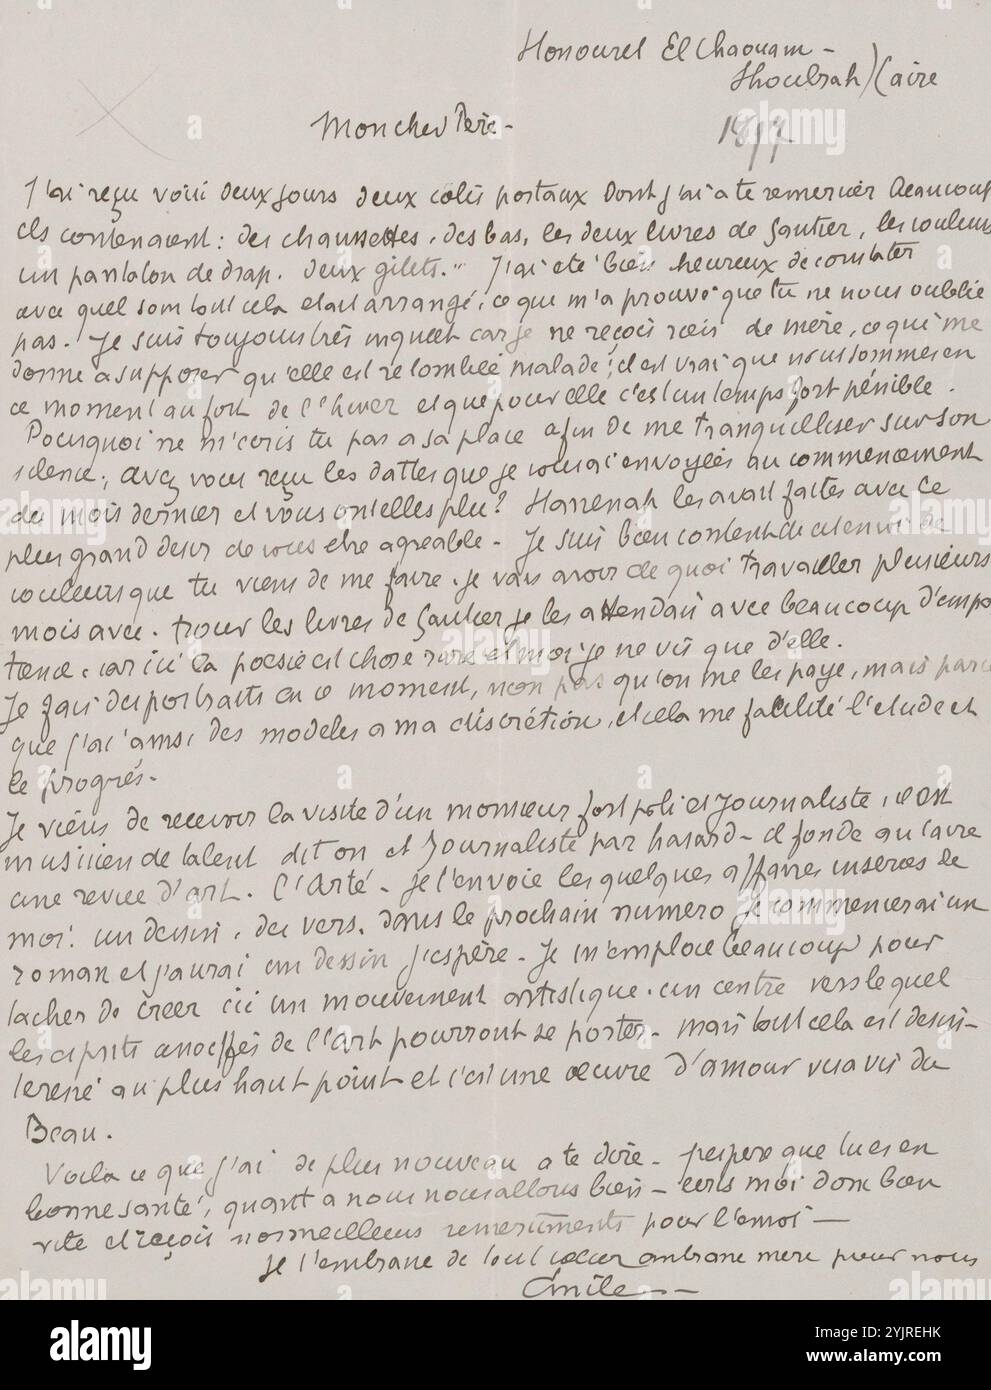 Honouret El Chaouam -
Shoubrah) Caire
1897
Mon cher Père -
J'ai reçu voici deux jours deux colis postaux dont j'ai a te remercier beaucoup
ils contenaient : des chaussettes, des bas, les deux livres de Gautier, les couleurs
un pantalon de drap. deux gilets. " J'ai été bien heureux de constater
avec quel soin tout cela etait arrangé, ce que m'a prouvé que tu ne nous oublie
pas. Je suis toujours très inquiet car je ne reçois rien de mère, ce qui me
donne a supposer qu'elle est retombée malade ; il est vrai que nous sommes en
ce moment au fort de l'hiver et que pour elle c'est un temps fort pénible.
Pourquoi ne m'ecris tu pas a sa place afin de me tranquilliser sur son
silence ; avez vous reçu les dattes que je vous ai envoyées au commencement
du mois dernier et vous ont elles plu ? Hanenah les avait faites avec le
plus grand desir de vous etre agreable - Je suis bien content du cet envoi de
couleurs que tu viens de me faire. je vais avoir de quoi travailler plusieurs
mois avec. pour les livres de Gautier je les attendais avec beaucoup d'impa
tence, car ici la poesie est chose rare et moi je ne vis que d'elle.
Je fais des portraits en ce moment, non pas qu'on me les paye, mais parce
que j'ai ainsi des modeles a ma discrétion, et cela me facilité l'etude et
le progrés -
Je viens de recevoir la visite d'un monsieur fort poli et journaliste, il est
musicien de talent dit on et journaliste par hasard - il fonde au Caire
une revue d'art. l'Arté - je t'envoie les quelques affaires inserées de
moi : un dessin, des vers. dans le prochain numero je commencerai un
roman et j'aurai un dessin j'espère - Je m'emploie beaucoup pour
tacher de creer ici un mouvement artistique, un centre vers lequel
les esprits anoffés de l'art pourront se porter - mais tout cela est desin-
teressé au plus haut point et c'est une œuvre d'amour vis a vis du
Beau.
Voila ce que j'ai de plus nouveau a te dire - j'espere que tu es en
bonne santé, quant a nous nous allons bien - ecris moi donc bien
vite et reçois nos meilleurs remerciments pour l'envoi -
Je t'embrasse de tout cœur embrasse mere pour nous
Emile -
alamy
Image ID: 2YJREHK
www.alamy.com